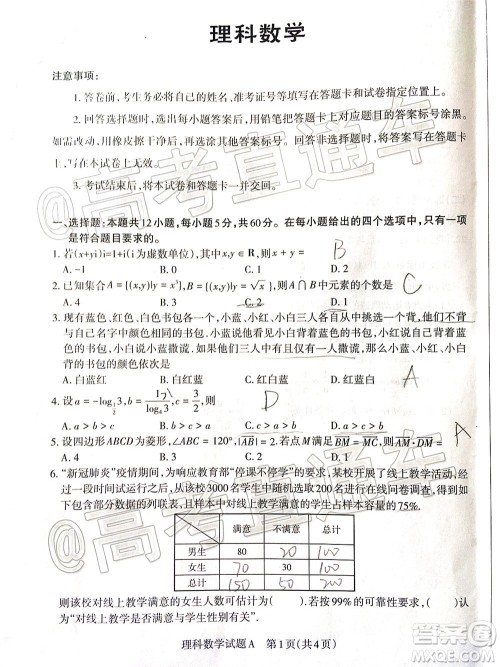 理科数学
注意事项:
1. 答卷前,考生务必将自己的姓名、准考证号等填写在答题卡和试卷指定位置上.
2. 回答选择题时,选出每小题答案后,用铅笔把答题卡上对应题目的答案标号涂黑。
如需改动,用橡皮擦干净后,再选涂其他答案标号. 回答非选择题时,将答案写在答题卡上,
写在本试卷上无效。
3. 考试结束后,将本试卷和答题卡一并交回.
一、选择题:本题共12小题,每小题5分,共60分。在每小题给出的四个选项中,只有一项
是符合题目要求的。
1. 若(x+yi)i=1+i(i为虚数单位),其中x,y∈R,则x+y= B
A. -1 B. 0 C. 1 D. 2
2. 已知集合A={(x,y)|y=x³},B={(x,y)|y=√x},则A∩B中元素的个数是 C
A. 0 B. 1 C. 2 D. 3
3. 现有白色、红色、蓝色书包各一个,小蓝、小红、小白三人各自从中挑选一个,他们不背
与自己名字中颜色相同的书包. 小蓝说看见小白背着蓝色的书包,小红说看见小白背着红色
的书包,小白说小蓝撒谎. 如果小蓝、小红、小白三人中有且仅有一人撒谎,则小蓝、小红、小白
背的书包的颜色依次是 A
A. 白蓝红 B. 红白蓝 C. 红蓝白 D. 白红蓝
5. 设四边形ABCD为菱形,∠BAD=120°,
A
6. “新冠肺炎”疫情期间,为响应教育部“停课不停学”的要求,某校开展了线上教学活动,经
过一段时间试运行之后,从该校3000名学生中随机选取200名进行在线问卷调查,得到包
含如下部分数据的列联表,且样本中对线上教学满意的学生占样本容量的75%.
满意 不满意 总计
男生 80 20 100
女生 70 30 100
总计 150 50
则该校对线上教学满意的女生人数可估计为( ). 若按99%的可靠性要求,
对线上教学是否满意与性别( )
理科数学试题A 第1页(共4页)
@高考直通车
@高考直通车